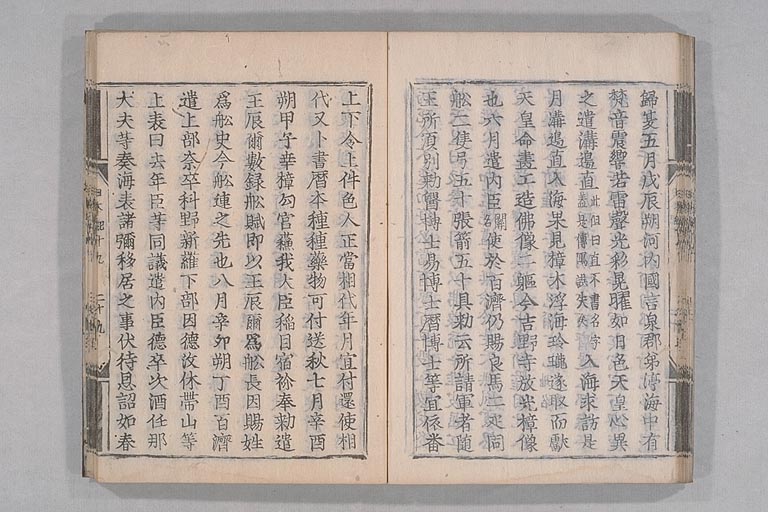 歸焉五月戊辰朔河內國言泉郡茅渟海中有
梵音震響若雷聲光彩晃曜如日色天皇心異
之遣溝邊直此但曰直不書名字蓋是傳寫誤失矣入海求訪是
月溝邊直入海果見樟木浮海玲瓏遂取而獻
天皇命畫工造佛像二軀今吉野寺放光樟像
也六月遣內臣闕名使於百濟仍賜良馬二疋同
舩二隻弓五十張箭五十具勅云所請軍者隨
王所須別勅醫博士易博士曆博士等宜依番
上下令上件色人正當相代年月宜付還使相
代又卜書曆本種種藥物可付送秋七月辛酉
朔甲子幸樟勾宮蘓我大臣稻目宿祢奉勅遣
王辰爾數錄舩賦即以王辰爾爲舩長因賜姓
爲舩史今舩連之先也八月辛卯朔丁酉百濟
遣上部奈卒科野新羅下部固德汶休帶山等
上表曰去年臣等同議遣內臣德卒次酒任那
大夫等奏海表諸彌移居之事伏待恩詔如春